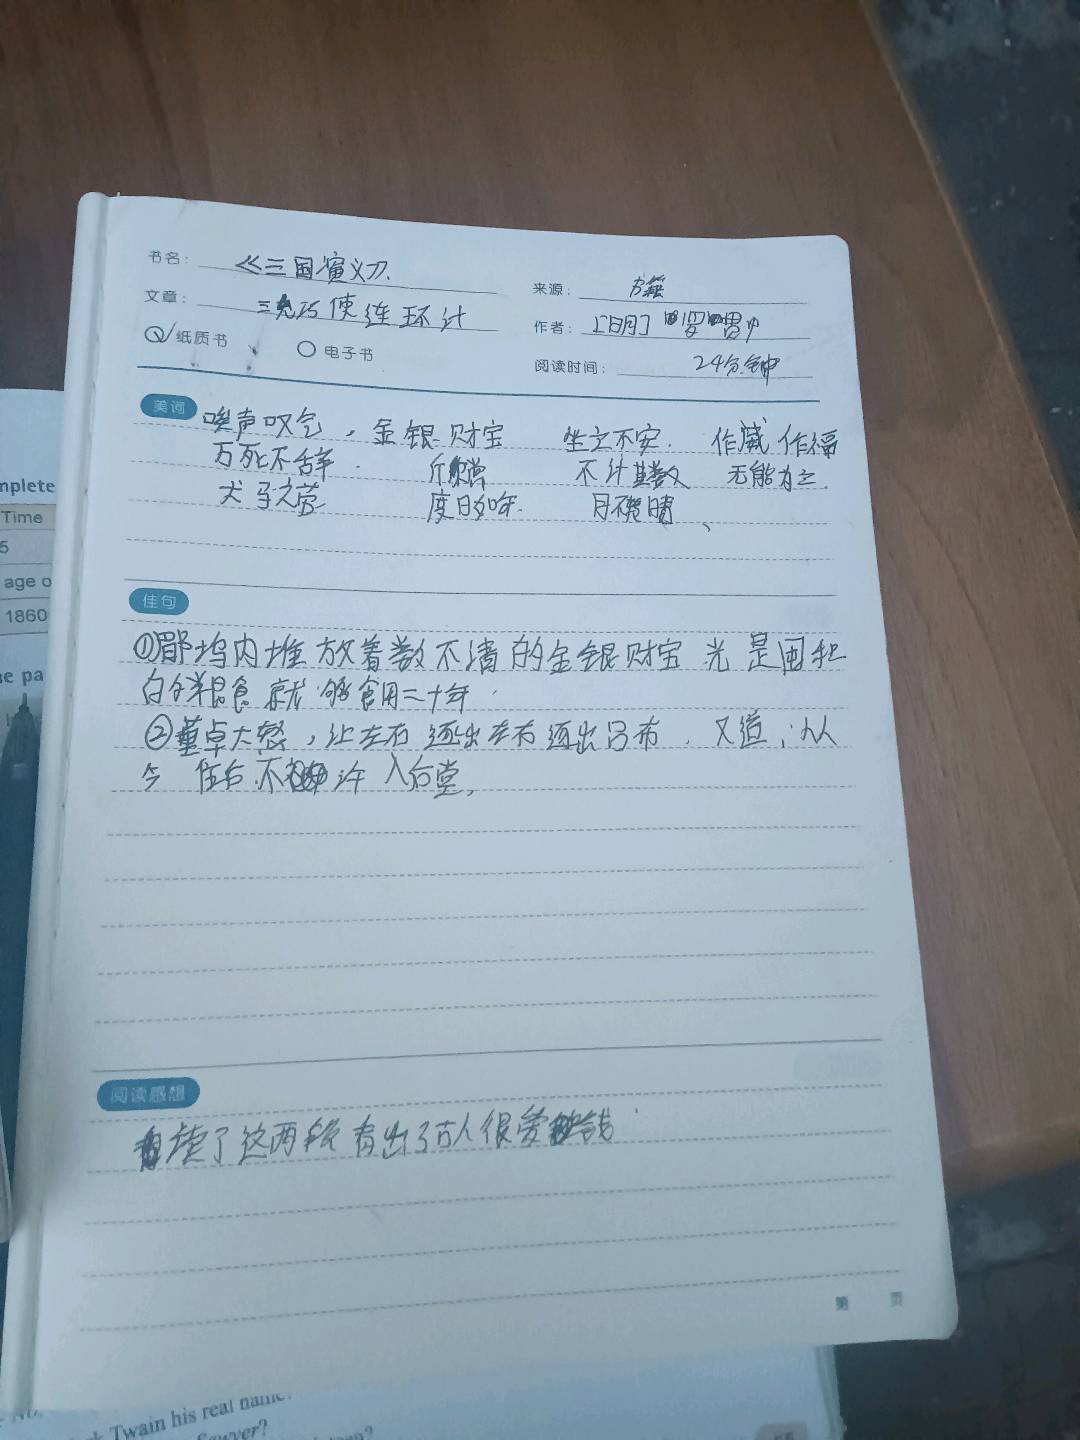 书名： 《三国演义》
来源： 书籍
文章： 巧使连环计
作者： [明] 罗贯中
纸质书 电子书
阅读时间： 24分钟
美词
唉声叹气， 金银财宝 坐立不安. 作威作福
万死不辞. 不计其数 无能为之.
犬马之劳 度日如年. 目不转睛、
佳句
①郿坞内堆放着数不清的金银财宝 光是囤积
的粮食就够食用二十年.
②董卓大怒，让左右逐出左右逐出吕布. 又道：从
今往后不许入后堂.
阅读感想
读了这两段看出了古人很爱钱.
第 页
mplete
Time
5
age o
1860
e pa
Twain his real name?
Sawyer?